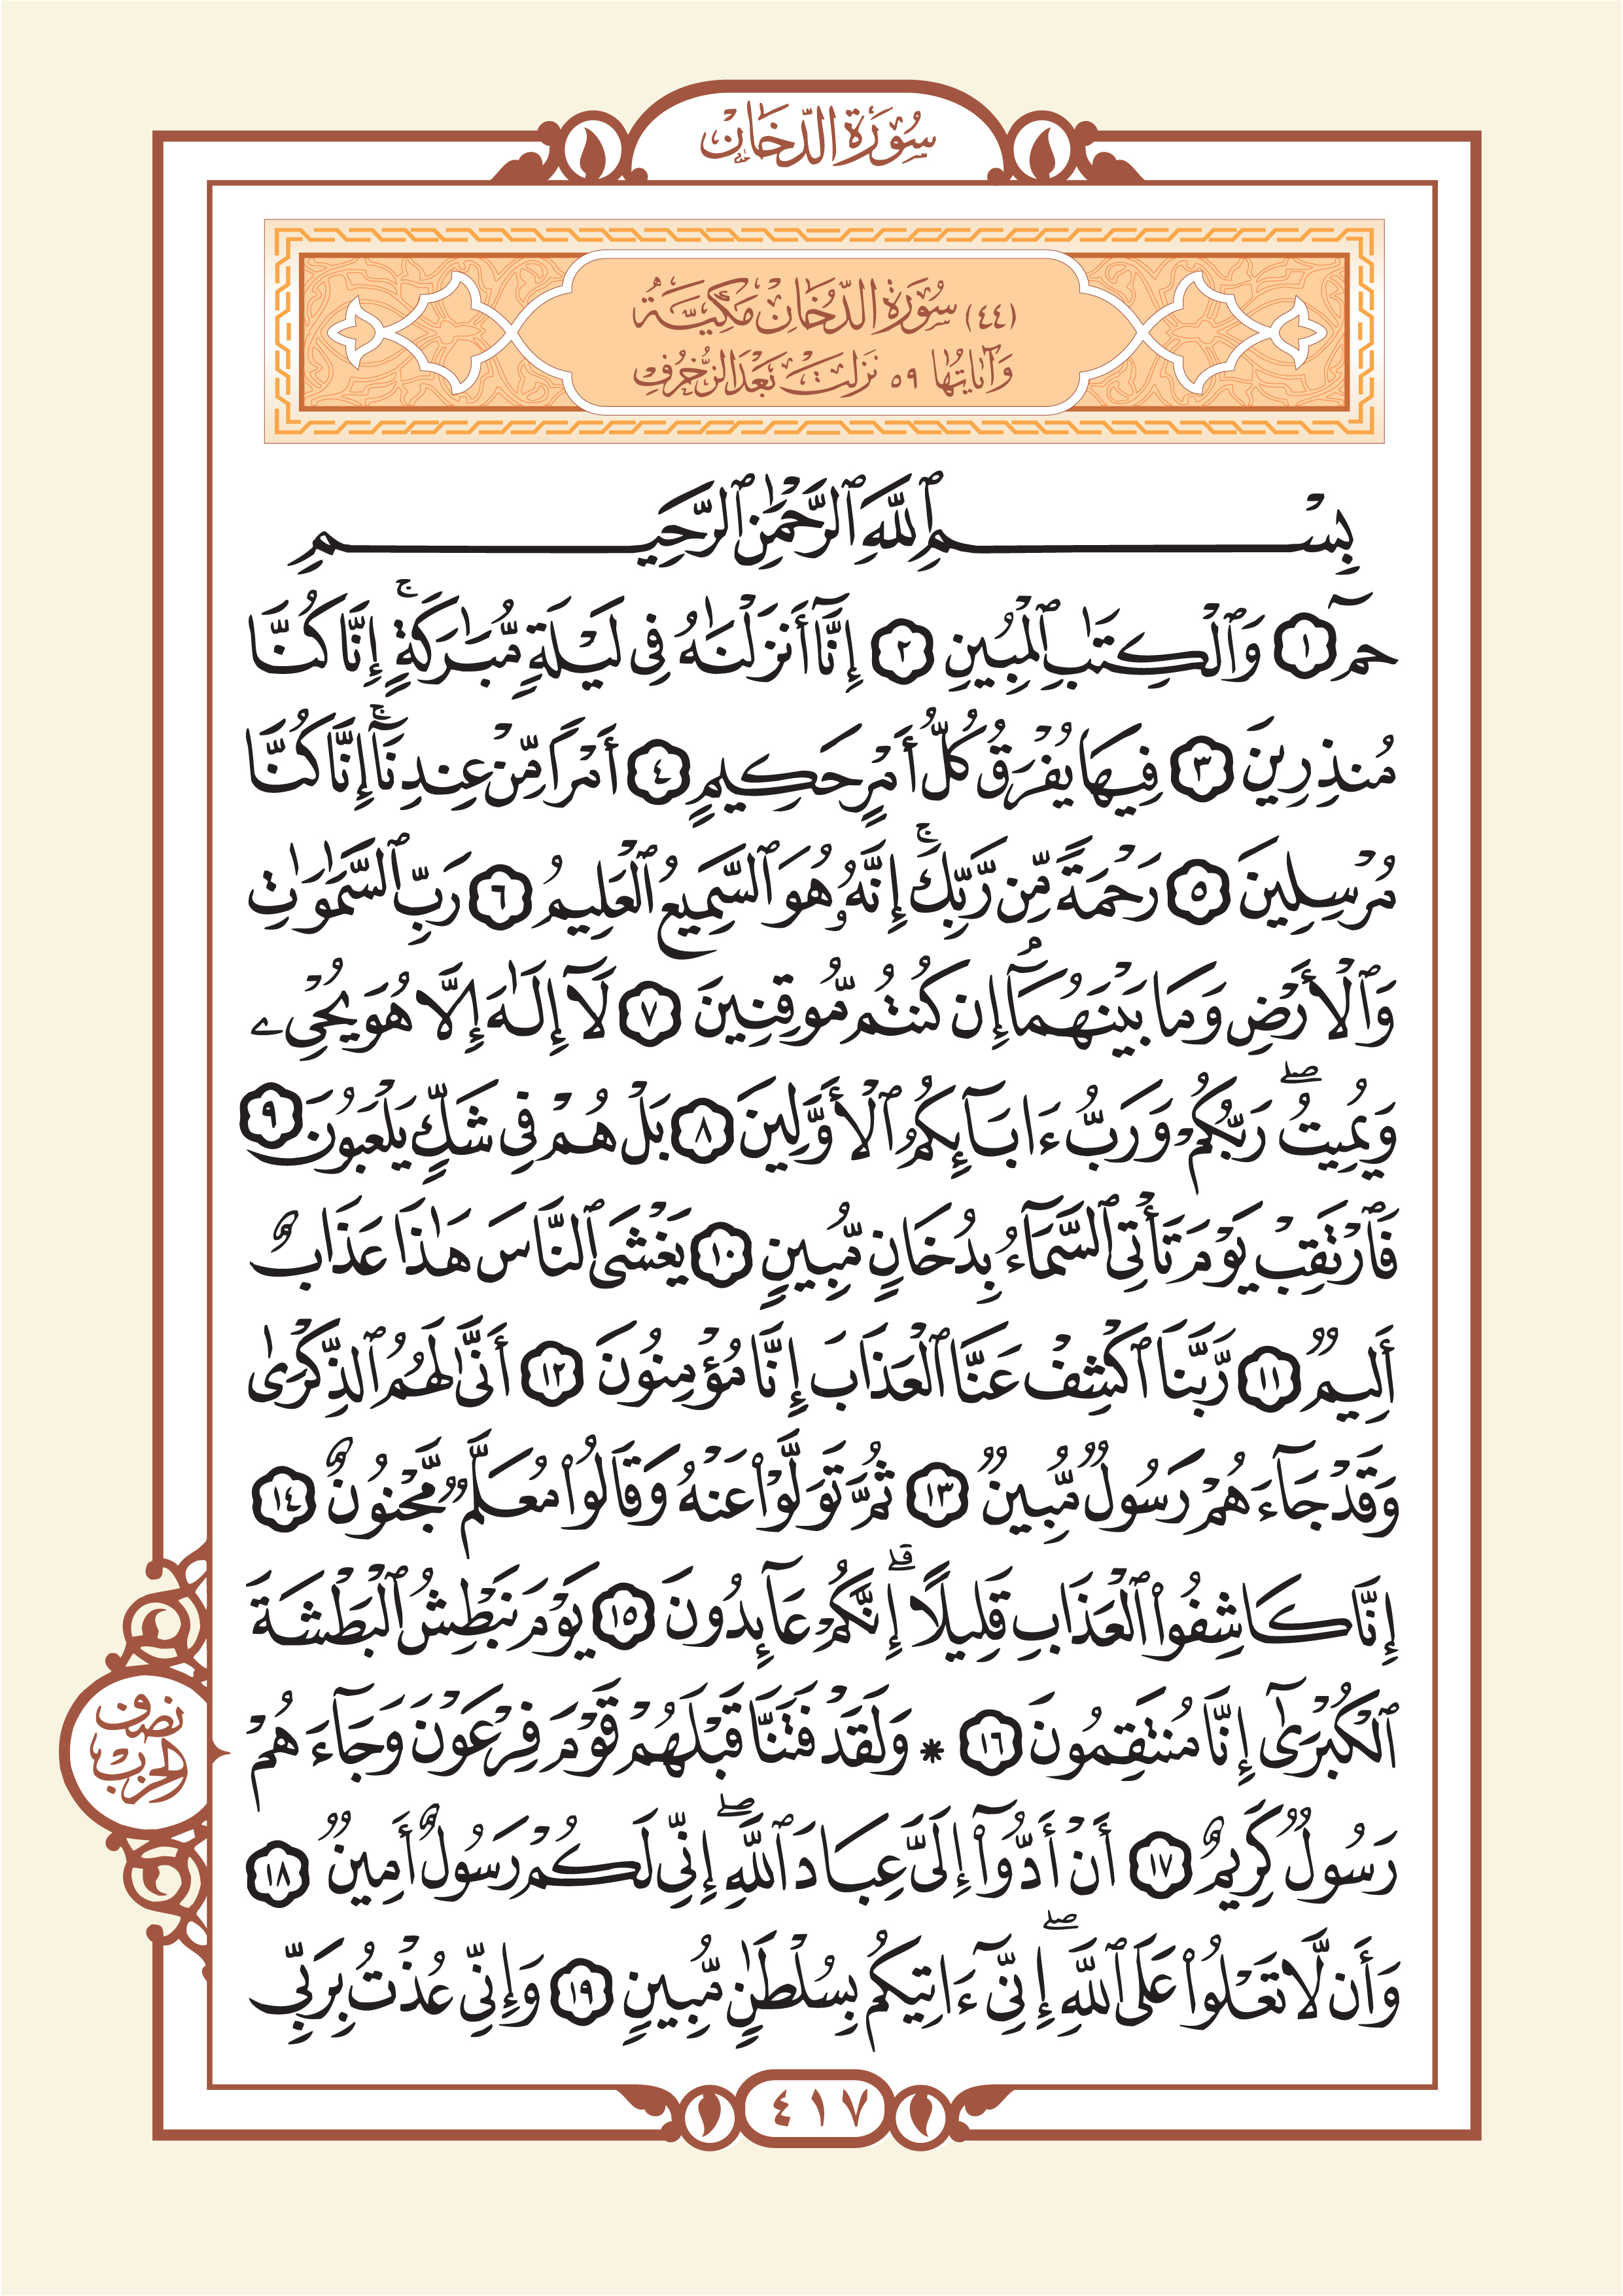 سُورَةُ الدُّخَانِ
(٤٤) سُورَةُ الدُّخَانِ مَكِّيَّةٌ
وَآيَاتُهَا ٥٩ نَزَلَتْ بَعْدَ الزُّخْرُفِ
بِسْمِ ٱللَّهِ ٱلرَّحْمَٰنِ ٱلرَّحِيمِ
حمٓ ١ وَٱلْكِتَٰبِ ٱلْمُبِينِ ٢ إِنَّآ أَنزَلْنَٰهُ فِى لَيْلَةٍ مُّبَٰرَكَةٍ ۚ إِنَّا كُنَّا
مُنذِرِينَ ٣ فِيهَا يُفْرَقُ كُلُّ أَمْرٍ حَكِيمٍ ٤ أَمْرًا مِّنْ عِندِنَآ ۚ إِنَّا كُنَّا
مُرْسِلِينَ ٥ رَحْمَةً مِّن رَّبِّكَ ۚ إِنَّهُۥ هُوَ ٱلسَّمِيعُ ٱلْعَلِيمُ ٦ رَبِّ ٱلسَّمَٰوَٰتِ
وَٱلْأَرْضِ وَمَا بَيْنَهُمَآ ۖ إِن كُنتُم مُّوقِنِينَ ٧ لَآ إِلَٰهَ إِلَّا هُوَ يُحْىِۦ
وَيُمِيتُ ۖ رَبُّكُمْ وَرَبُّ ءَابَآئِكُمُ ٱلْأَوَّلِينَ ٨ بَلْ هُمْ فِى شَكٍّ يَلْعَبُونَ ٩
فَٱرْتَقِبْ يَوْمَ تَأْتِى ٱلسَّمَآءُ بِدُخَانٍ مُّبِينٍ ١٠ يَغْشَى ٱلنَّاسَ هَٰذَا عَذَابٌ
أَلِيمٌ ١١ رَّبَّنَا ٱكْشِفْ عَنَّا ٱلْعَذَابَ إِنَّا مُؤْمِنُونَ ١٢ أَنَّىٰ لَهُمُ ٱلذِّكْرَىٰ
وَقَدْ جَآءَهُمْ رَسُولٌ مُّبِينٌ ١٣ ثُمَّ تَوَلَّوْا۟ عَنْهُ وَقَالُوا۟ مُعَلَّمٌ مَّجْنُونٌ ١٤
إِنَّا كَاشِفُوا۟ ٱلْعَذَابِ قَلِيلًا ۚ إِنَّكُمْ عَآئِدُونَ ١٥ يَوْمَ نَبْطِشُ ٱلْبَطْشَةَ
ٱلْكُبْرَىٰٓ إِنَّا مُنتَقِمُونَ ١٦ * وَلَقَدْ فَتَنَّا قَبْلَهُمْ قَوْمَ فِرْعَوْنَ وَجَآءَهُمْ
نصف
الحزب
رَسُولٌ كَرِيمٌ ١٧ أَنْ أَدُّوٓا۟ إِلَىَّ عِبَادَ ٱللَّهِ ۖ إِنِّى لَكُمْ رَسُولٌ أَمِينٌ ١٨
وَأَن لَّا تَعْلُوا۟ عَلَى ٱللَّهِ ۖ إِنِّىٓ ءَاتِيكُم بِسُلْطَٰنٍ مُّبِينٍ ١٩ وَإِنِّى عُذْتُ بِرَبِّى
٤١٧